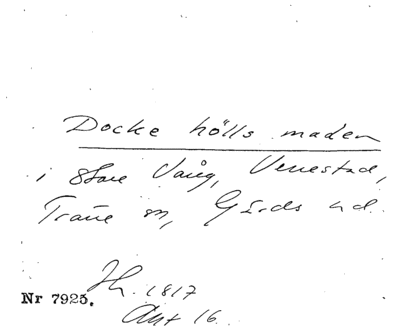 Docke hölls maden
i Stora Vång, Venestad,
Träne sn, Gärds hd.
Jh. 1817
Nr 7925.
Akt 16